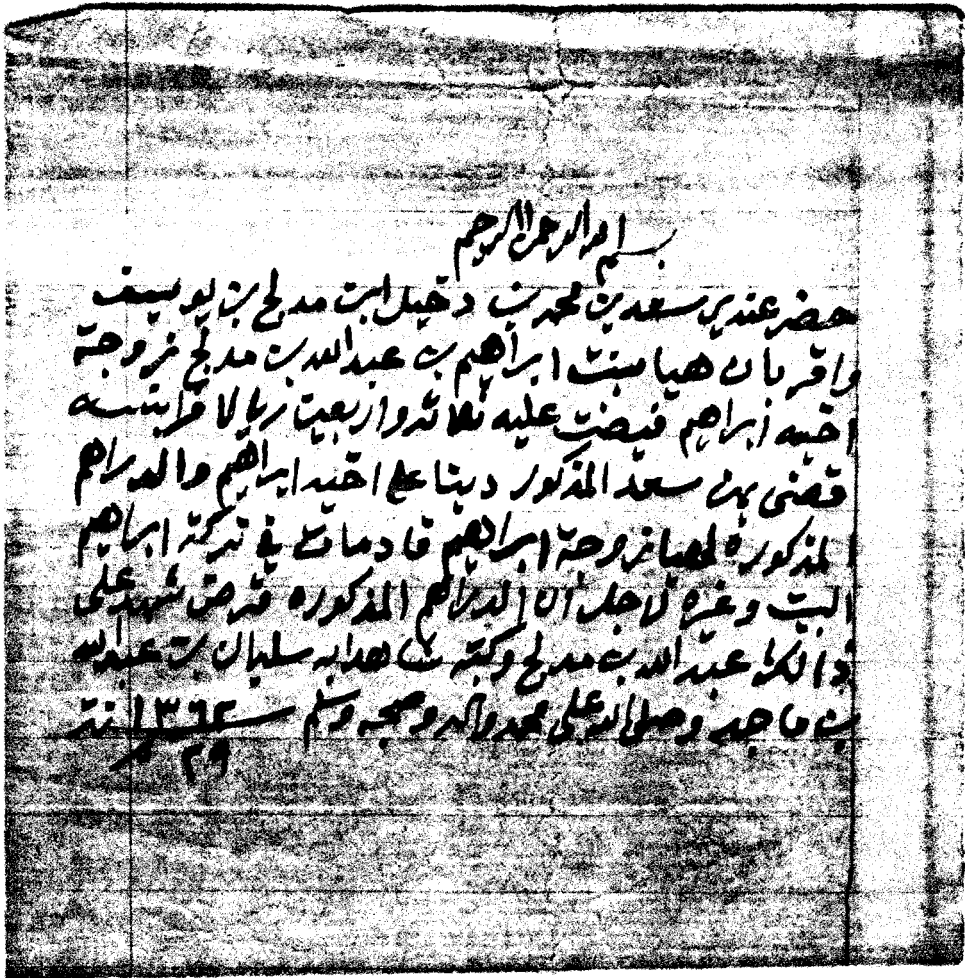 بسم الله الرحمن الرحيم
حضر عندي سعد بن محمد بن دخيل ابن مدلج بن يوسف
واقر بان هيا بنت ابراهيم بن عبدالله بن مدلج زوجة
اخيه ابراهيم عليه ثلاثه واربعين ريالا
قضى بهن سعد المذكور دينا على اخيه ابراهيم والدراهم
المذكوره لهيا زوجة ابراهيم في تركة ابراهيم
البيت وغيره لاجل ان الدراهم المذكوره قرض شهد على
ذالك عبدالله بن مدلج وكتبه شاهدا به سليمان بن عبدالله
بن ماجد وصلى الله على محمد واله وصحبه وسلم
٢٩